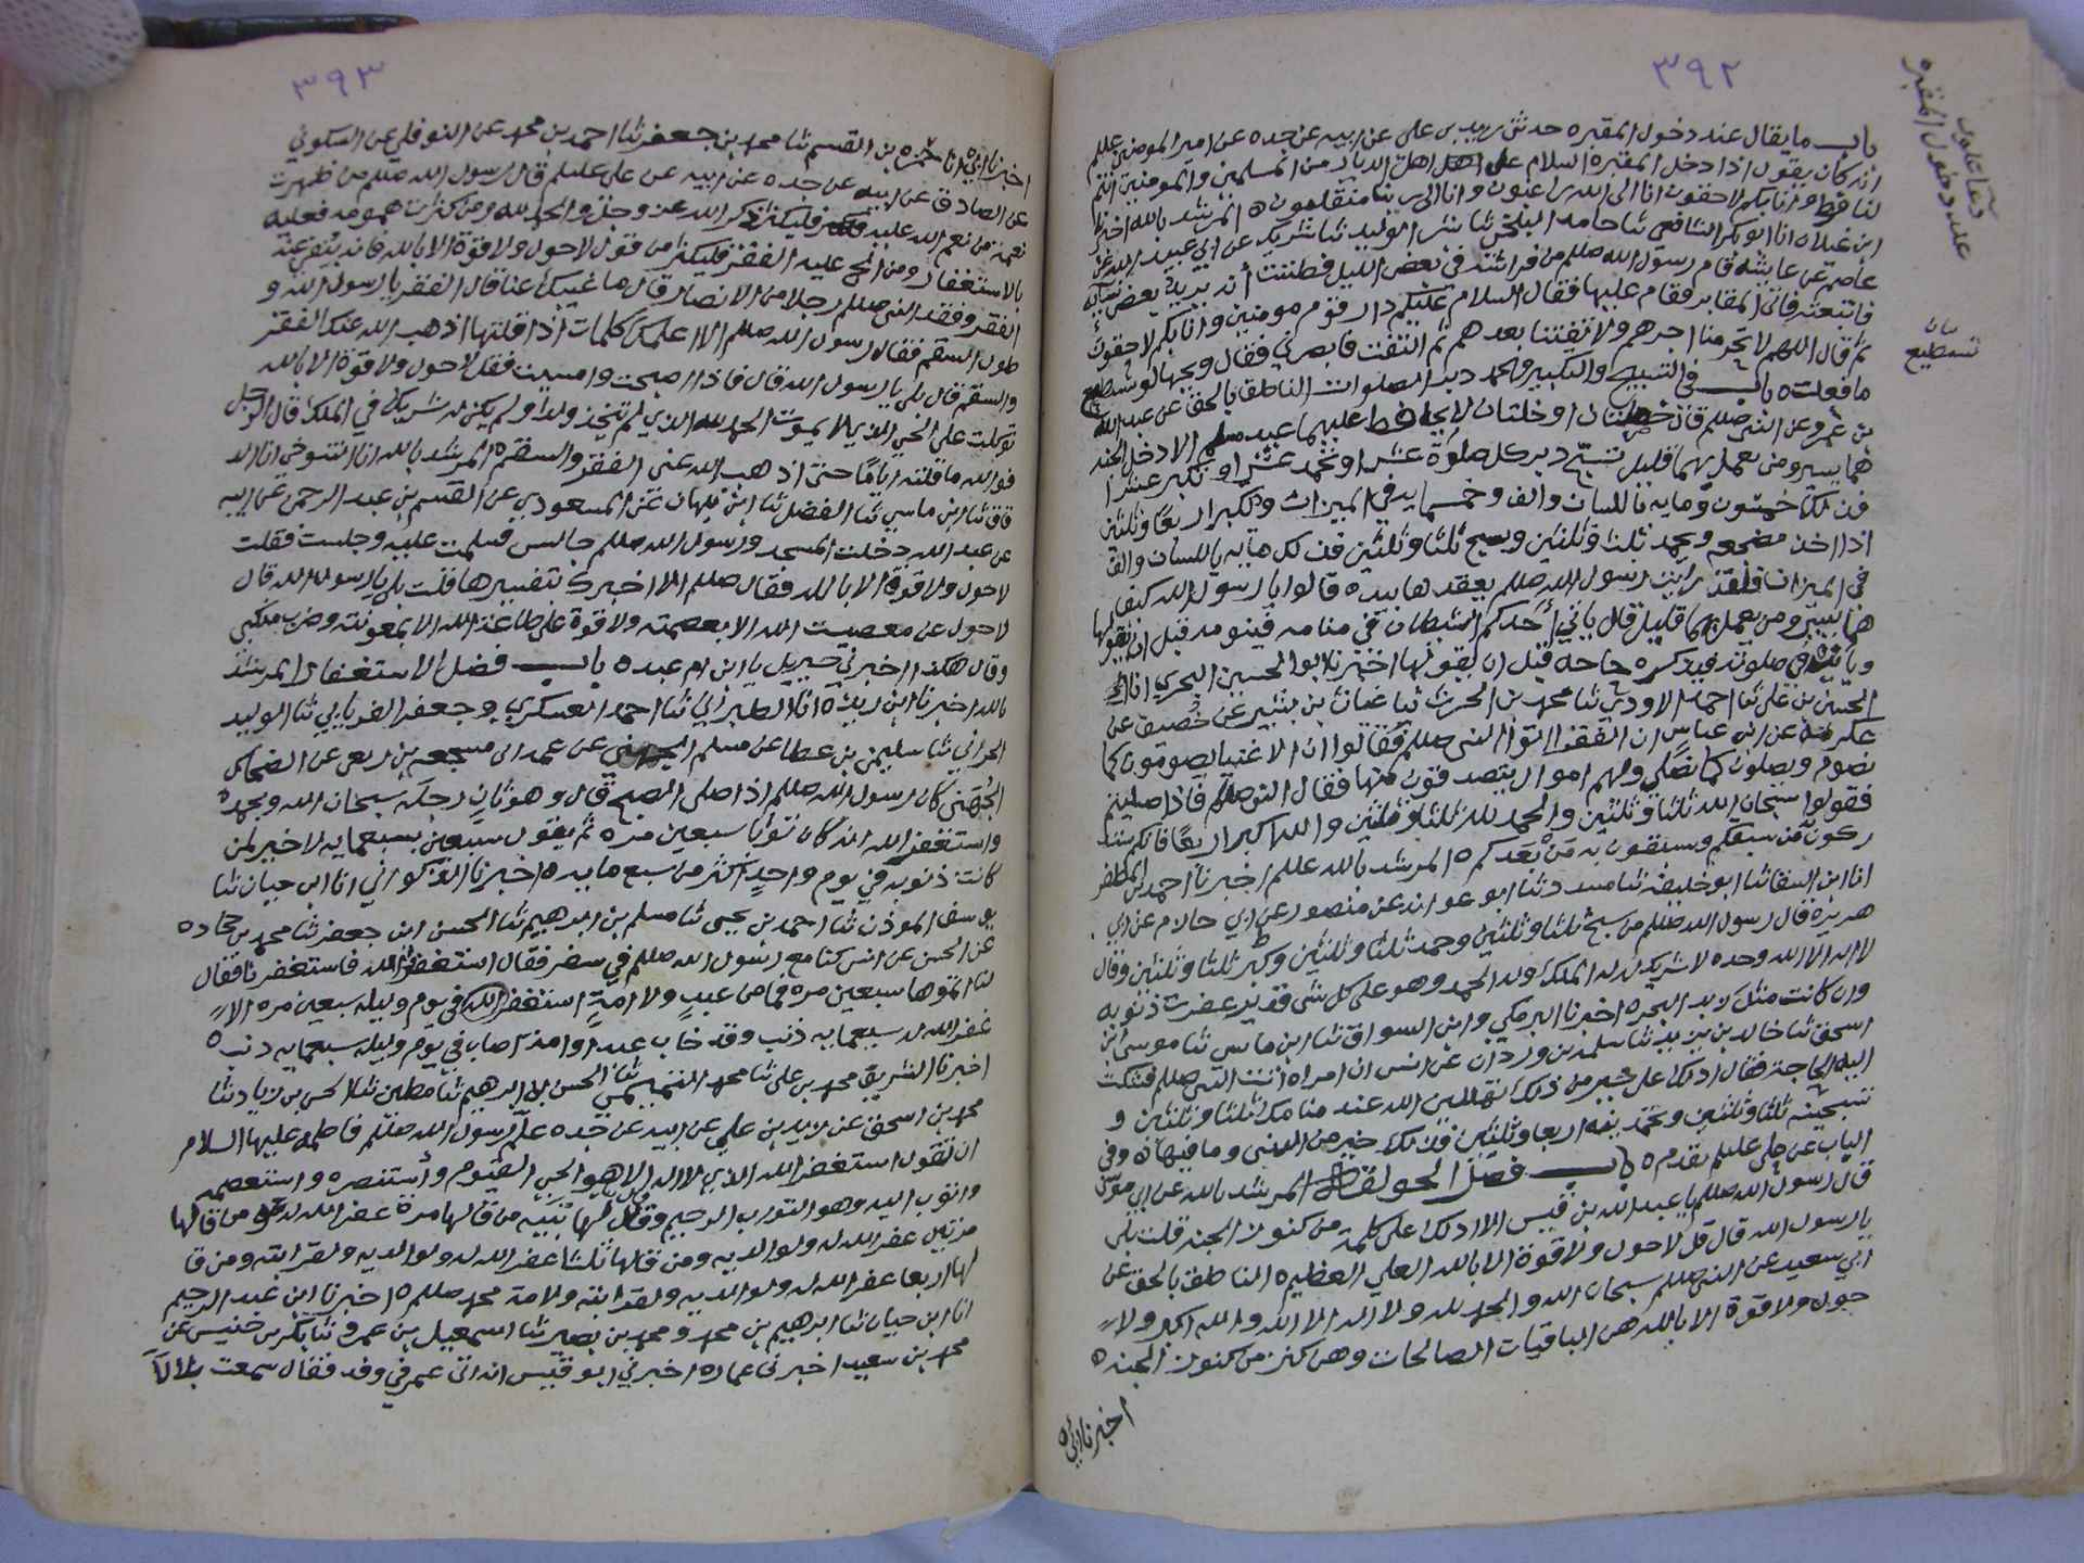 ٣٩٢
دعاء
عند دخول المقبره
باب ما يقال عند دخول المقبره حدثني زيد بن علي عن ابيه عن جده عن امير المومنين عليلم
انه كان يقول اذا دخل المقبره السلام على اهل الديار من المسلمين والمومنين انتم
لنا فرط وانا بكم لاحقون انا الى الله راغبون وانا الى ربنا منقلبون ه المرشد بالله اخبرنا
ابن غيلان انا ابو بكر الشافعي ثنا حامد البلخي ثنا بشر الوليد ثنا شريك عن ابي عبيد الله عن
عاصم عن عايشه قام رسول الله صللم من فراشه في بعض الليل فظننت انه يريد بعض نسايه
فاتبعته فاتى المقابر فقام عليها فقال السلام عليكم دار قوم مومنين وانا بكم لاحقون
ثم قال اللهم لا تحرمنا اجرهم ولا تفتنا بعدهم ثم التفت فابصرني فقال ويحها لو تستطيع
بيان
تستطيع
ما فعلت ه باب في التسبيح والتكبير والحمد دبر الصلوات الناطق بالحق عن عبد الله
بن عمرو عن النبي صللم قال خصلتان او خلتان لا يحافظ عليهما عبد مسلم الا دخل الجنه
هما يسير ومن يعمل بهما قليل تسبح دبر كل صلوة عشرا وتحمد عشرا وتكبر عشرا
فذلك خمسون ومايه باللسان والف وخمسمايه في الميزان وتكبر اربعا وثلثين
اذا اخذ مضجعه ويحمد ثلثا وثلثين ويسبح ثلثا وثلثين فذلك مايه باللسان والف
في الميزان فلقد رايت رسول الله صللم يعقدها بيده قالوا يا رسول الله كيف
هما يسير ومن يعمل بهما قليل قال ياتي احدكم الشيطان في منامه فينومه قبل ان يقولها
وياتيه في صلوته فيذكره حاجه قبل ان يقولها اخبرنا ابو الحسين البحري انا
الحسين بن علي ثنا احمد الاودي ثنا محمد بن الحرث ثنا عتاب بن بشير عن خصيف عن
عكرمه عن ابن عباس ان الفقرا اتوا النبي صللم فقالوا ان الاغنيا يصومون كما
نصوم ويصلون كما نصلي ولهم اموال يتصدقون منها فقال النبي صللم فاذا صليتم
فقولوا سبحان الله ثلثا وثلثين والحمد لله ثلثا وثلثين والله اكبر اربعا فانكم تد
ركون من سبقكم وتسبقون به من بعدكم ه المرشد بالله عليلم اخبرنا احمد بن المظفر
انا ابن السقا ثنا ابو خليفه ثنا مسدد ثنا ابو عوانه عن منصور عن ابي حازم عن ابي
هريره قال رسول الله صللم من سبح ثلثا وثلثين وحمد ثلثا وثلثين وكبر ثلثا وثلثين وقال
لا اله الا الله وحده لا شريك له له الملك وله الحمد وهو على كل شى قدير غفرت ذنوبه
وان كانت مثل زبد البحر ه اخبرنا البرمكي وابن السواق ثنا ابن ماسي ثنا موسى ابن
اسحق ثنا خالد بن يزيد ثنا سلمه بن وردان عن انس ان امراه اتت النبي صللم فشكت
اليه الحاجة فقال ادلك على خير من ذلك تهللين الله عند منامك ثلثا وثلثين و
تسبحينه ثلثا وثلثين وتحمدينه اربعا وثلثين فذلك خير من الدنيا وما فيها ه وفي
الباب عن علي عليلم تقدم ه باب فضل الحولقه المرشد بالله عن ابي موسى
قال رسول الله صللم يا عبد الله بن قيس الا ادلك على كلمة من كنوز الجنه قلت بلى
يا رسول الله قال قل لا حول ولا قوة الا بالله العلي العظيم ه الناطق بالحق عن
ابي سعيد عن النبي صللم سبحان الله والحمد لله ولا اله الا الله والله اكبر ولا
حول ولا قوة الا بالله هن الباقيات الصالحات وهن كنز من كنوز الجنه ه
اخبرنا
٣٩٣
اخبرنا حمزه بن القسم ثنا محمد بن جعفر ثنا احمد بن محمد عن النوفلي عن السكوني
عن الصادق عن ابيه عن جده عن ابيه عن علي عليلم قال رسول الله صللم من ظهرت
نعمة من نعم الله عليه فليكثر ذكر الله عز وجل والحمد لله ومن كثرت همومه فعليه
بالاستغفار ومن الح عليه الفقر فليكثر من قول لا حول ولا قوة الا بالله فانه ينفي عنه
الفقر وفقد النبي صللم رجلا من الانصار قال ما غيبك عنا قال الفقر يا رسول الله و
طول السقم فقال رسول الله صللم الا اعلمك كلمات اذا قلتها اذهب الله عنك الفقر
والسقم قال بلى يا رسول الله قال فاذا اصبحت وامسيت فقل لا حول ولا قوة الا بالله
توكلت على الحي الذي لا يموت الحمد لله الذي لم يتخذ ولدا ولم يكن له شريك في الملك قال الرجل
فوالله ما قلته اياما حتى اذهب الله عني الفقر والسقم ه المرشد بالله انا التنوخي انا ابن الد
قاق ثنا ابن ماسي ثنا الفضل ثنا عن المسعودي عن القسم بن عبد الرحمن عن ابيه
عن عبد الله دخلت المسجد ورسول الله صللم جالس فسلمت عليه وجلست فقلت
لا حول ولا قوة الا بالله فقال صللم الا اخبرك بتفسيرها قلت بلى يا رسول الله قال
لا حول عن معصيت الله الا بعصمته ولا قوة على طاعة الله الا بمعونته وضرب منكبي
وقال هكذا اخبرني جبريل يا ابن ام عبد ه باب فضل الاستغفار المرشد
بالله اخبرنا ابن ريذه انا الطبراني ثنا احمد العسكري وجعفر الفريابي ثنا الوليد
الحراني ثنا سليمن بن عطا عن مسلم الجهني عن عمه ابي مسجعه بن ربعي عن الضحاك
الجهني كان رسول الله صللم اذا صلى الصبح قال وهو ثان رجله سبحان الله وبحمده
واستغفر الله انه كان توابا سبعين مره ثم يقول سبعين بسبعمايه لا خير لمن
كانت ذنوبه في يوم واحد اكثر من سبع مايه ه اخبرنا الذكواني انا ابن حيان ثنا
يوسف الموذن ثنا احمد بن يحيى ثنا مسلم بن ابرهيم ثنا الحسن ابن جعفر ثنا محمد بن جحاده
عن الحسن عن انس كنا مع رسول الله صللم في سفر فقال استغفروا الله فاستغفرنا فقال
لنا اتموها سبعين مره فما من عبد ولا امة استغفر الله في يوم وليله سبعين مره الا
غفر الله له سبعمايه ذنب وقد خاب عبد او امه اصاب في يوم وليله سبعمايه ذنب ه
اخبرنا الشريف محمد بن علي ثنا محمد التميمي ثنا الحسن بن ابرهيم ثنا مطين ثنا الحسن بن زياد ثنا
محمد بن اسحق عن زيد بن علي عن ابيه عن جده علم رسول الله صللم فاطمه عليها السلام
ان تقول استغفر الله الذي لا اله الا هو الحي القيوم واستنصره واستعصمه
واتوب اليه وهو التواب الرحيم وقال لها بنيه من قالها مرة غفر الله له ومن قالها
مرتين غفر الله له ولوالديه ومن قالها ثلثا غفر الله له ولوالديه ولقرابته ومن قا
لها اربعا غفر الله له ولوالديه ولقرابته ولامة محمد صللم ه اخبرنا ابن عبد الرحيم
انا ابن حيان ثنا ابرهيم بن محمد ومحمد بن نصير ثنا اسمعيل بن عمرو ثنا بكر بن خنيس عن
محمد بن سعيد اخبرني عماره اخبرني ابو قيس انه اتى عمر في وفد فقال سمعت بلالا